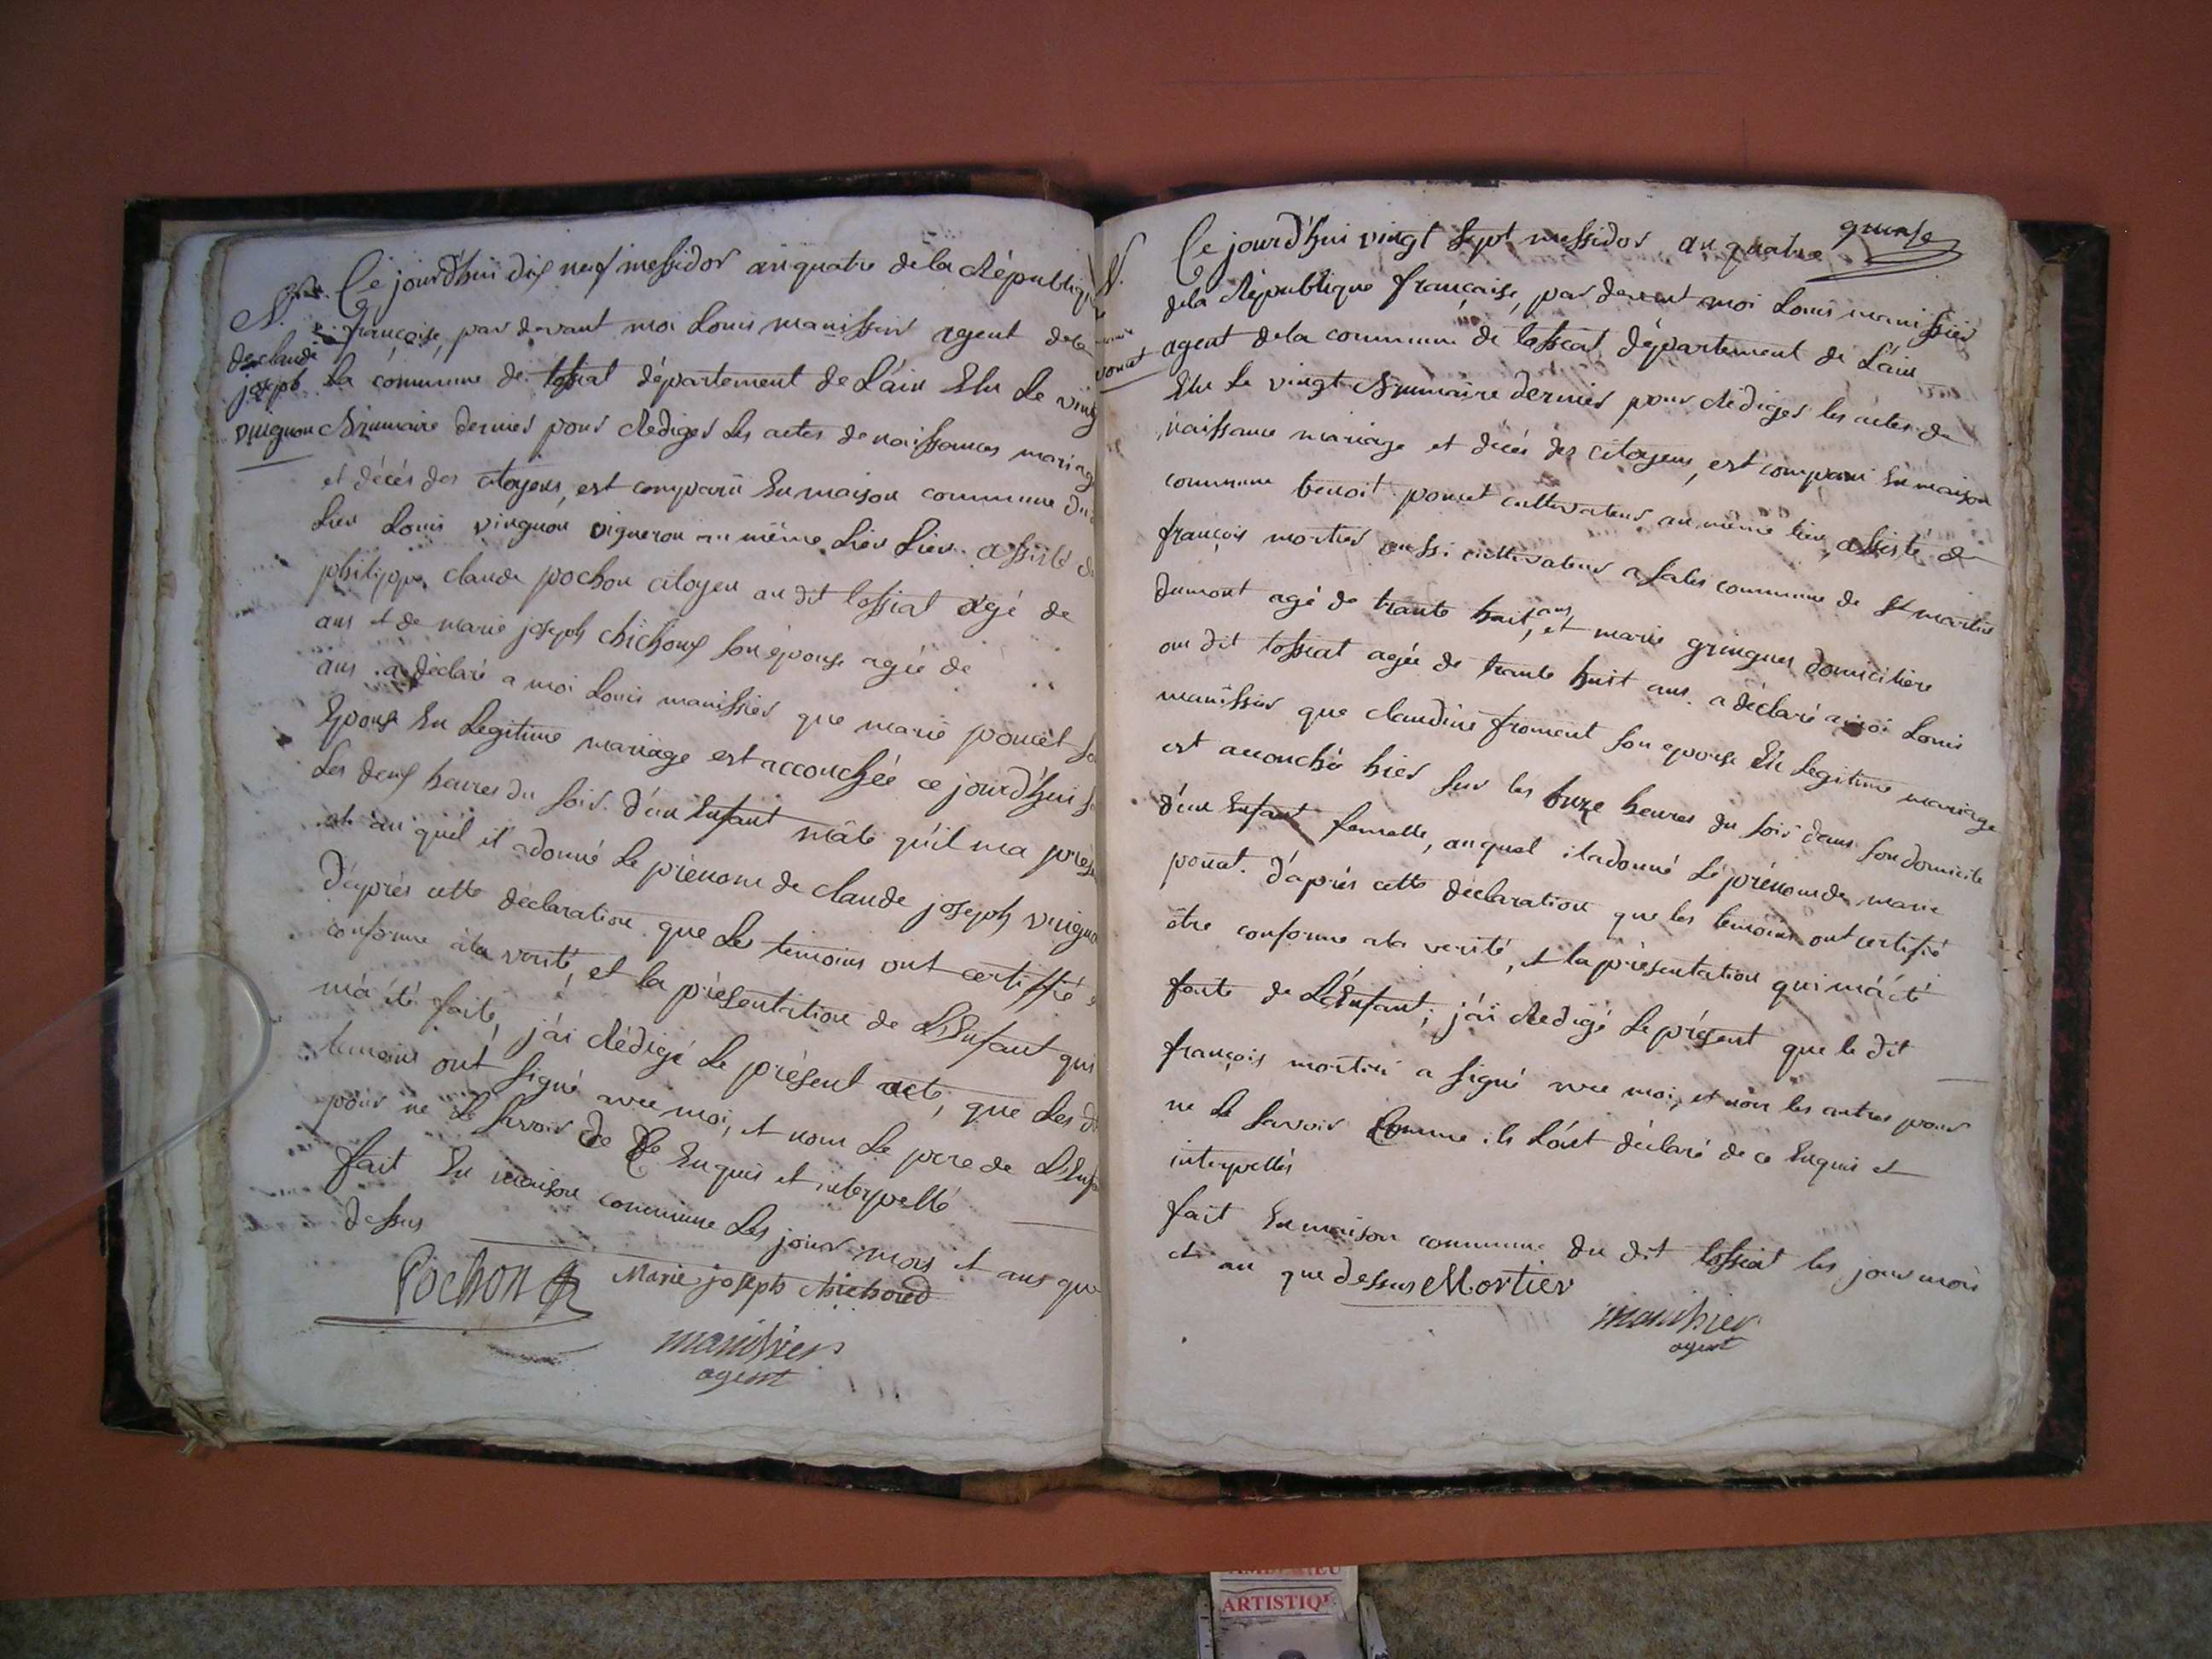 Ce jourd'hui dix neuf messidor an quatre de la Républiq
N.
française, par devant moi Louis manissier agent de la
de claude
joseph
La commune de tossiat département de L'ain Elu Le vingt
vuignon
Brumaire dernier pour Rediger Les actes de naissances mariag
et décés des citoyens, est comparu En maison commune du
Lieu Louis vuignon vigneron au même Lieu Lieu assisté d
philippe claude pochon citoyen au dit tossiat agé de
ans et de marie joseph chichoux son épouse agée de
ans a déclaré a moi Louis manissier que marie poncet so
Epouse En Legitime mariage est accouchée ce jourd'hui s
Les deux heures du soir d'un Enfant mâle qu'il ma prése
et au quel il a donné Le prénom de claude joseph vuigno
D'après cette déclaration que Les témoins ont certiffié e
conforme à la verité, et la présentation de L'Enfant qui
m'a été faite, j'ai Rédigé Le présent acte, que Les d
temoins ont signé avec moi, et non Le pere de L'Enf
pour ne Le savoir de Ce Enquis et interpellé
fait En maison commune Les jour mois et ans que
dessus
Pochon Marie joseph chichoud
manissier
agent
quinse
N.
poncet
Ce jourd'hui vingt sept messidor an quatre
de la République française, par devent moi Louis manissier
agent de la commune de tossiat département de L'ain
Elu Le vingt Brumaire dernier pour Rediger les actes de
naissance mariage et décés des citoyens, est comparu En maison
commune benoit poncet cultivateur au même lieu, assisté de
françois mortier aussi cultivateur a sales commune de st martin
dumont agé de trante huit ans, et marie gringuer domiciliere
au dit tossiat agée de trante huit ans. a déclaré a moi Louis
manissier que claudine froment son epouse En Legitime mariage
est accouché hier sur les onze heures du soir dans son domicile
d'un Enfant femelle, au quel il a donné Le prénom de marie
poncet. D'après cette déclaration que les temoins ont certifié
être conforme a la verité, et la présentation qui m'a été
faite de L'Enfant, j'ai Redigé Le présent que le dit
françois mortier a signé avec moi, et non les autres pour
ne Le savoir Comme ils L'ont déclaré de ce Enquis et
interpellés
fait En maison commune du dit tossiat les jour mois
et an que dessus Mortier
manissier
agent
ARTISTIQ